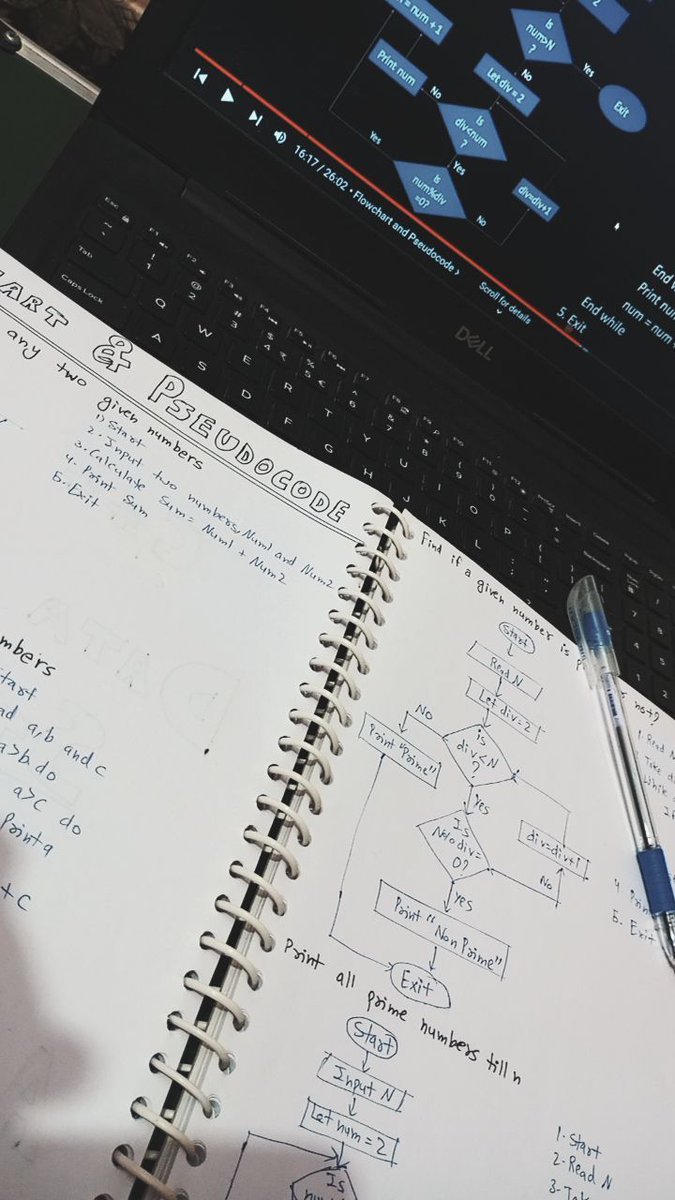 = num + 1
Is
num>N
?
2
Print num
No
Let div = 2
No
Yes
Exit
Is
div<num
?
Yes
Yes
Is
num%div
=0?
No
div=div+1
16:17 / 26:02 • Flowchart and Pseudocode ›
Scroll for details
End
Print nu
num = num
End while
5. Exit
DELL
Esc
Tab
Caps Lock
F1 F2 F3 F4 F5 F6 F7
Q W E R T Y U I O P
A S D F G H J K L
ART & PSEUDOCODE
any two given numbers
1) Start
2. Input two numbers, Num1 and Num2
3. Calculate Sum = Num1 + Num2
4. Print Sum
5. Exit
mbers
tart
ad a,b and c
a>b do
a>c do
Print a
+ c
Find if a given number is p not?
Start
Read N
Let div=2
No
is
div<N
?
Print "Prime"
Yes
Is
N%div=
0?
div=div+1
No
Yes
Print "Non Prime"
Exit
1. Read N
Take d
If
4. Prin
5. Exit
Print all prime numbers till n
Start
Input N
Let num = 2
Is
1. Start
2. Read N
3. Tak